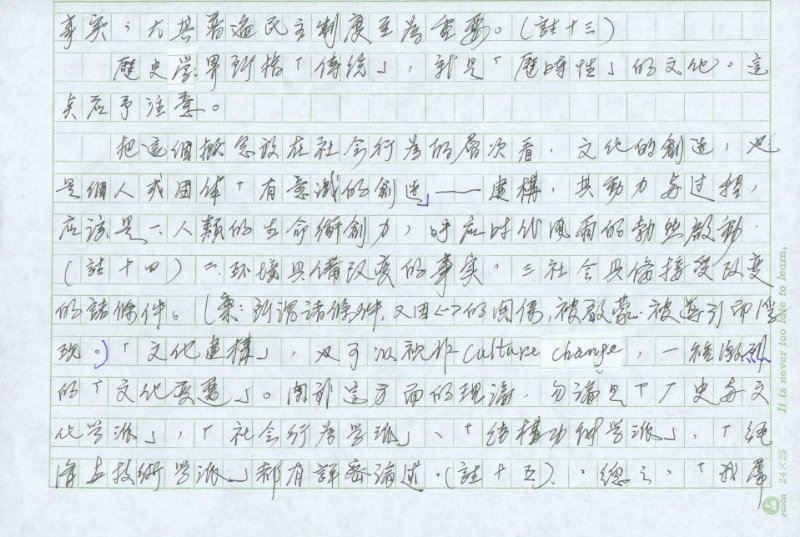 事实，尤其普遍民主制度至為重要。（註十三）
歷史学界所稱「傳統」，就是「歷時性」的文化。這
矣应予注意。
把這個概念放在社会行為的層次看，文化的創造，也
是個人或团体「有意識的創造」——建構，其動力與过程，
应該是一、人類的生命衝創力，呼应时代風雨的勃然啟動。
（註十四）二、环境具備改变的事实，三社会具備接受改变
的諸條件。（案：所謂諸條件，又因<一>的関係，被啟蒙、被導引而浮
現。）「文化建構」，也可以視作 culture change，一種激烈
的「文化变遷」。関於這方面的理論，勿論是「厂史與文
化学派」，「社会行為学派」、「结構功能学派」、「经
濟與技術学派」都有詳密論述。（註十五）。總之，「我屬
It is never too late to learn.
24×25